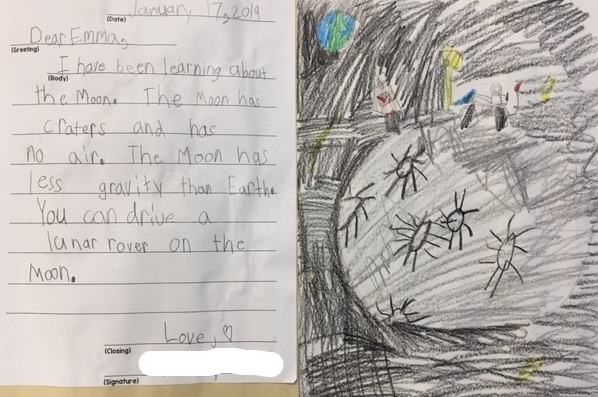 January 17, 2019
(Date)
Dear Emma,
(Greeting)
I have been learning about
(Body)
the Moon. The Moon has
craters and has
no air. The Moon has
less gravity than Earth.
You can drive a
lunar rover on the
Moon.
Love, ♡
(Closing)
(Signature)